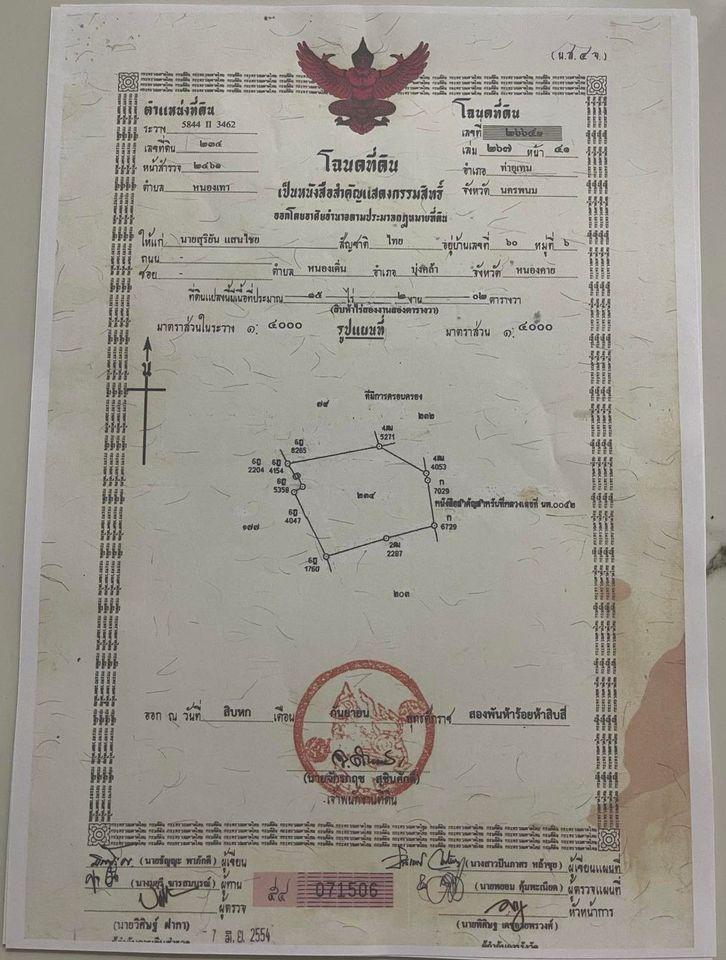 (น.ส.๔ จ.)
ตำแหน่งที่ดิน
ระวาง 5844 II 3462
เลขที่ดิน ๒๓๔
หน้าสำรวจ ๒๔๖๑
ตำบล หนองเทา
โฉนดที่ดิน
เลขที่ ๒๖๖๔๑
เล่ม ๒๖๗ หน้า ๔๑
อำเภอ ท่าอุเทน
จังหวัด นครพนม
โฉนดที่ดิน
เป็นหนังสือสำคัญแสดงกรรมสิทธิ์
ออกโดยอาศัยอำนาจตามประมวลกฎหมายที่ดิน
ให้แก่ นายสุริยัน แสนไชย สัญชาติ ไทย อยู่บ้านเลขที่ ๖๐ หมู่ที่ ๖
ถนน -
ซอย - ตำบล หนองเดิ่น อำเภอ บุ่งคล้า จังหวัด หนองคาย
ที่ดินแปลงนี้มีเนื้อที่ประมาณ ๑๕ ไร่ ๒ งาน ๐๒ ตารางวา
(สิบห้าไร่สองงานสองตารางวา)
มาตราส่วนในระวาง ๑: ๔๐๐๐ รูปแผนที่ มาตราส่วน ๑: ๔๐๐๐
น
๗๙ ที่มีการครอบครอง
๒๓๒
4ฒ
5271
6ฎ
8265
6ฎ
2204
6ฎ
4154
4ฒ
4053
ก
7029
6ฎ
5358
๒๓๔
หนังสือสำคัญสำหรับที่หลวงเลขที่ นพ.๐๐๕๒
6ฎ
4047
๑๗๗
ก
6729
2ฒ
2287
6ฎ
1760
๒๐๓
ออก ณ วันที่ สิบหก เดือน กันยายน พุทธศักราช สองพันห้าร้อยห้าสิบสี่
เจ้าพนักงานที่ดิน
ผู้เขียน
ผู้ทาน
ผู้ตรวจ
071506
ผู้เขียนแผนที่
ผู้ตรวจแผนที่
หัวหน้าการ
7 มี.ย. 2554